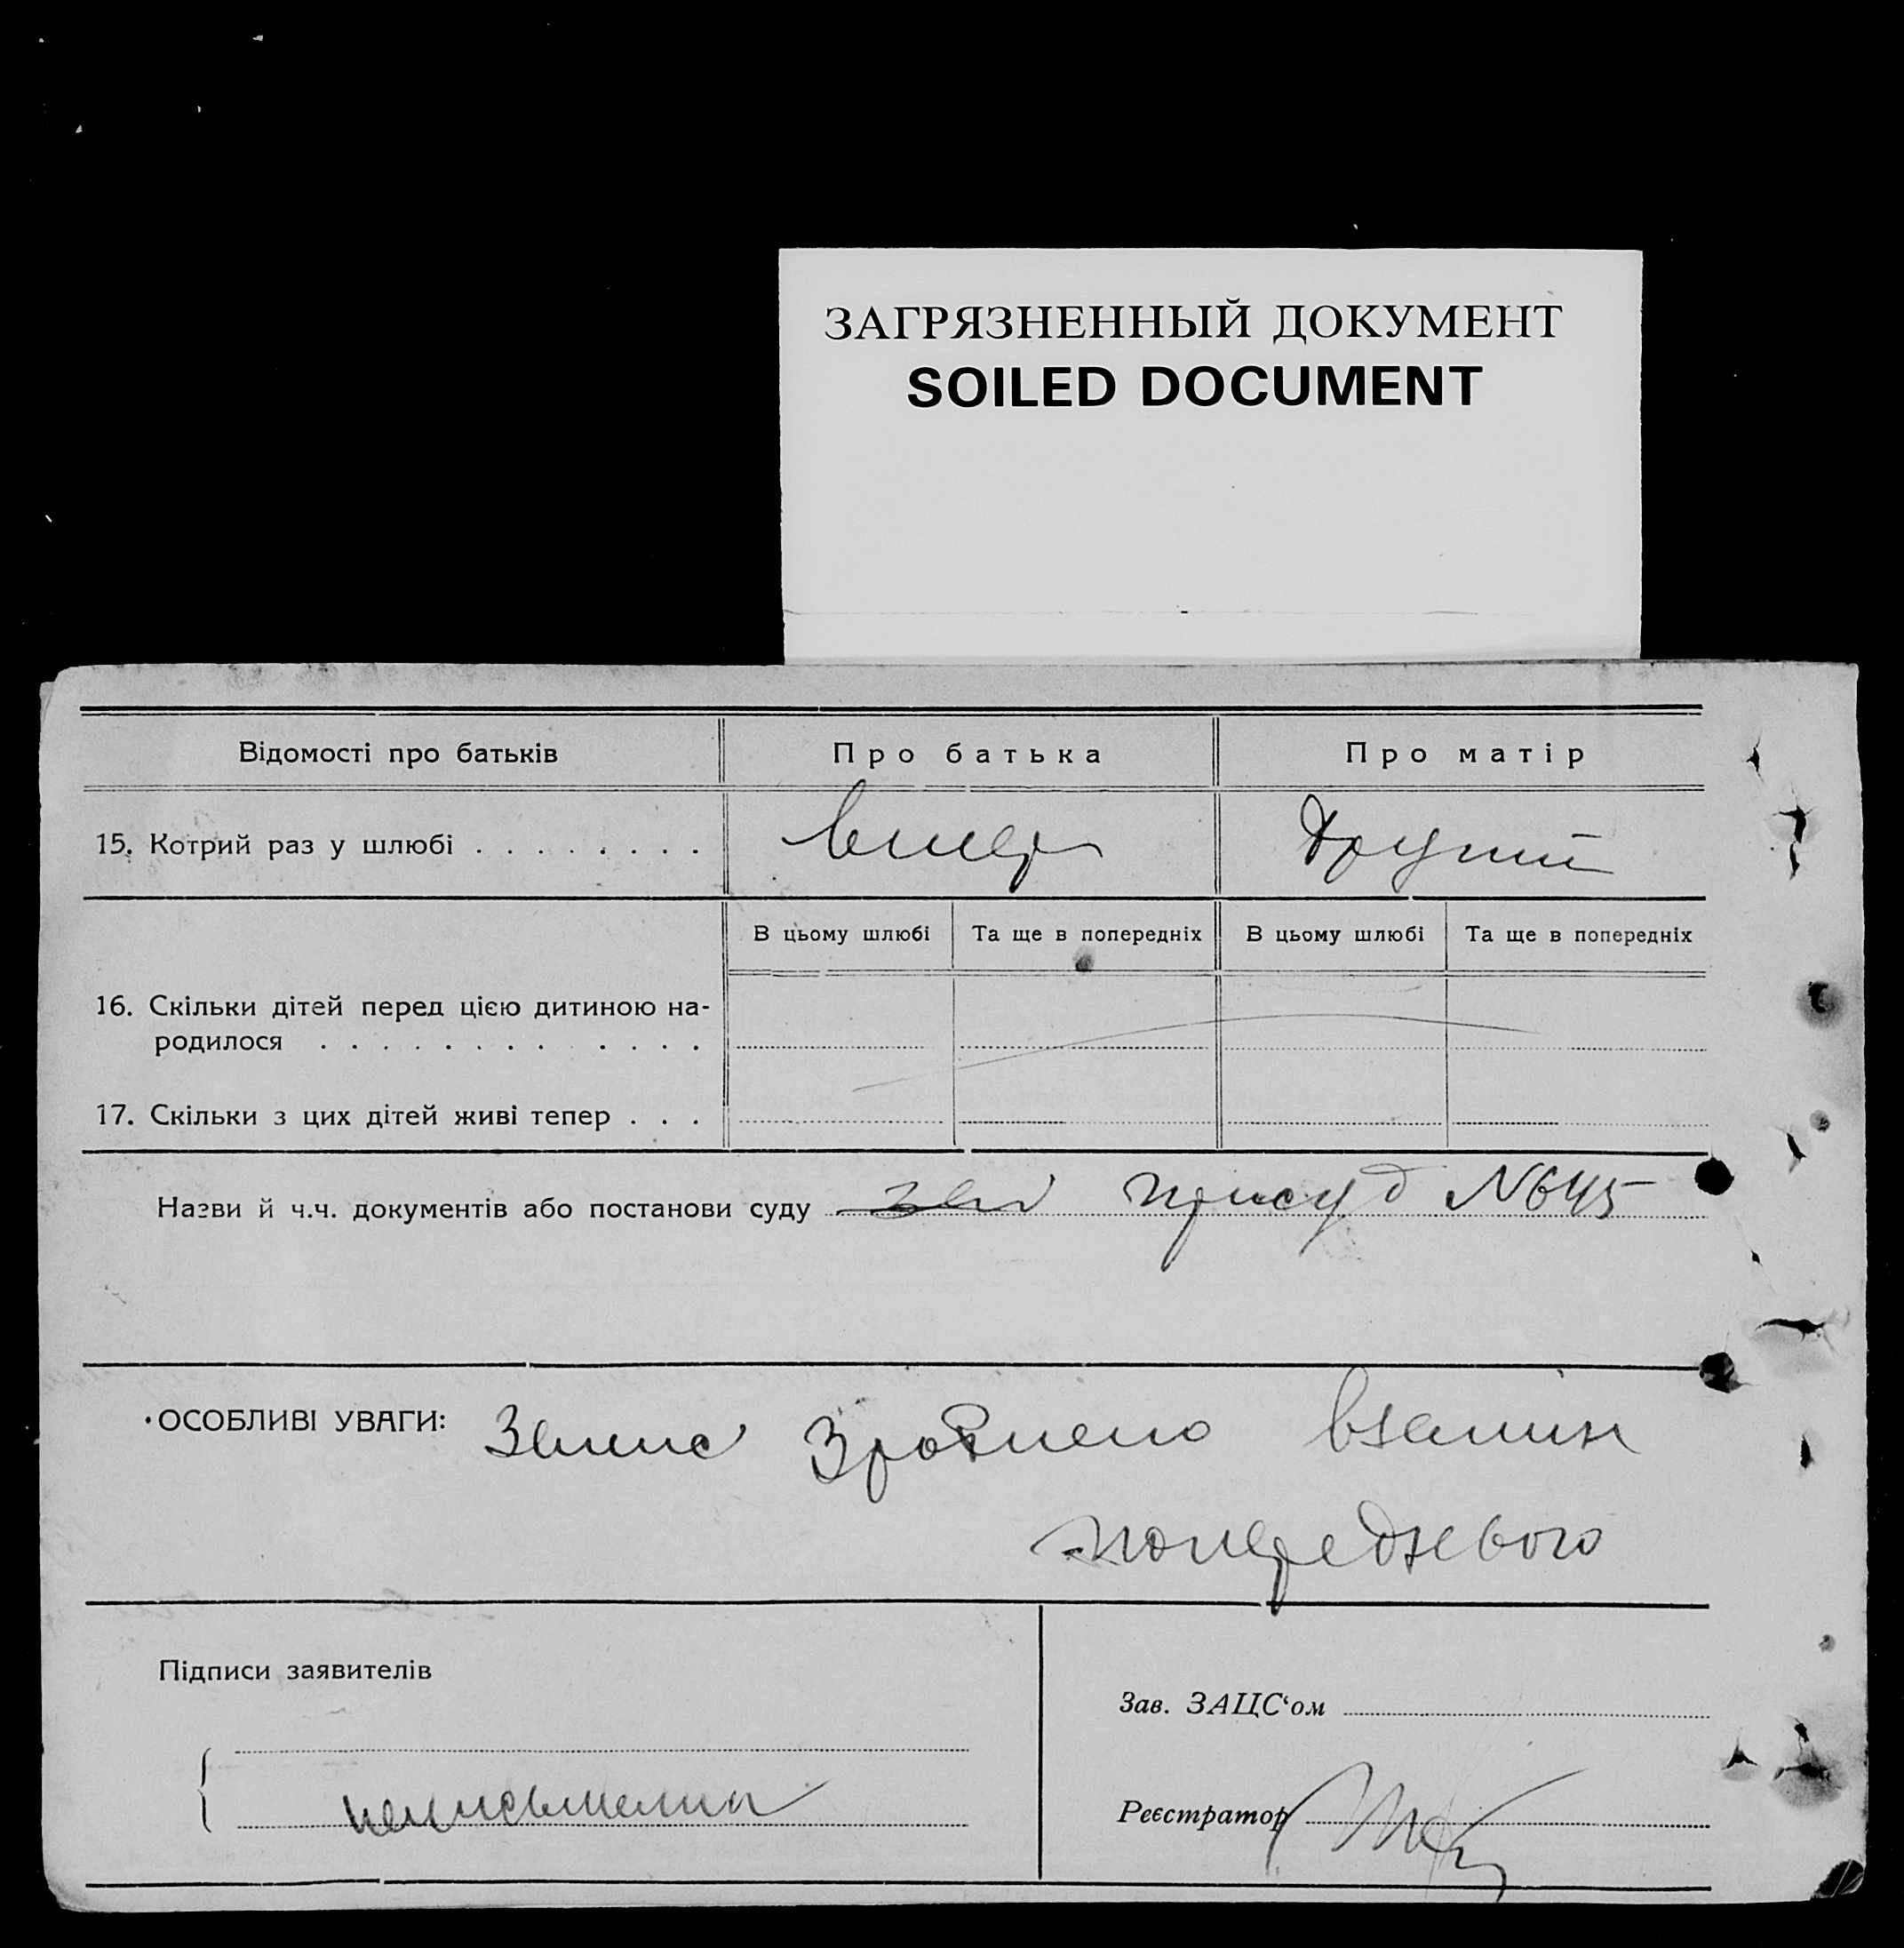 ЗАГРЯЗНЕННЫЙ ДОКУМЕНТ
SOILED DOCUMENT
Відомості про батьків Про батька Про матір
15. Котрий раз у шлюбі . . . . . . . . вперш другий
В цьому шлюбі Та ще в попередніх В цьому шлюбі Та ще в попередніх
16. Скільки дітей перед цією дитиною на-
родилося . . . . . . . . . . . . .
17. Скільки з цих дітей живі тепер . . .
Назви й ч.ч. документів або постанови суду присуд N645
ОСОБЛИВІ УВАГИ: Запис Зроблено взамін
попереднього
Підписи заявителів
Зав. ЗАЦС‘ом
неписьменна
Реєстратор